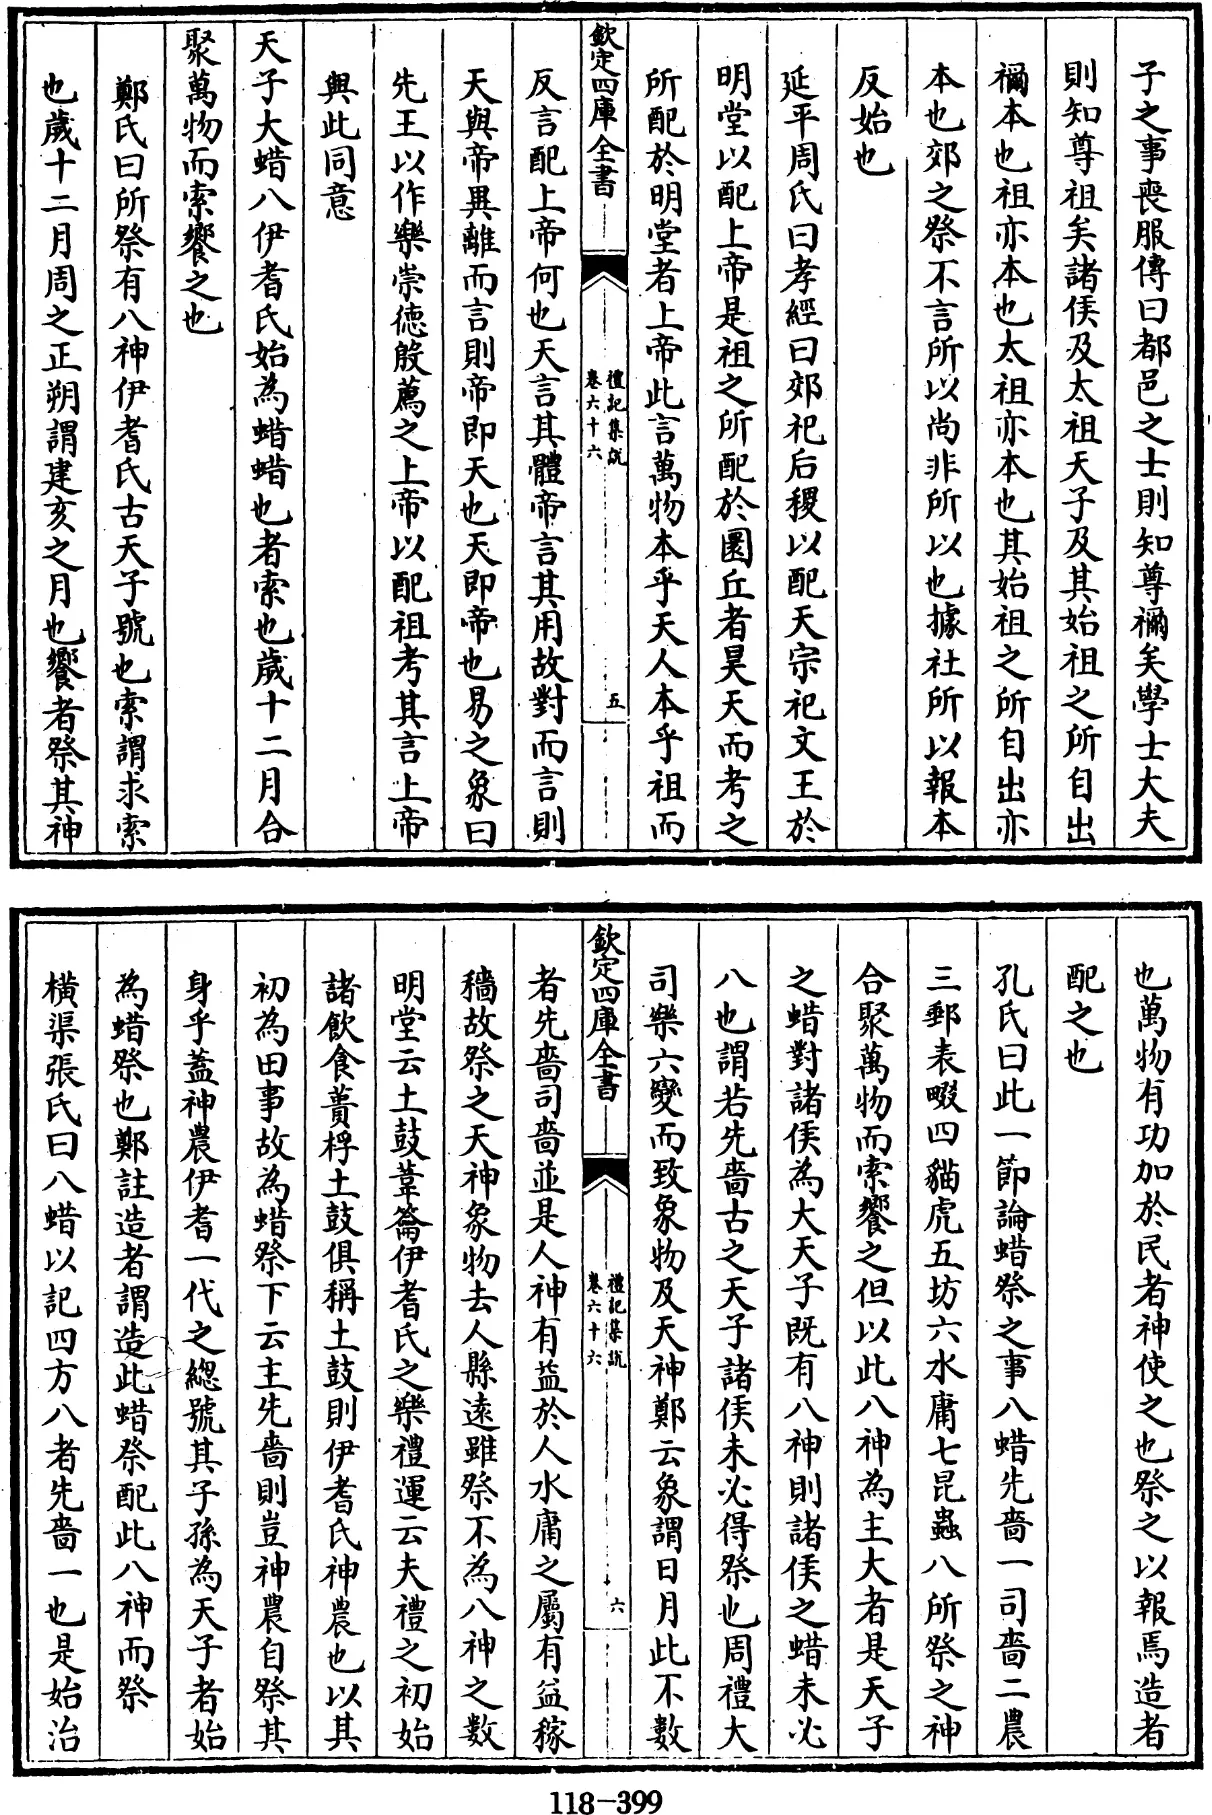 子之事喪服傳曰都邑之士則知尊禰矣學士大夫
則知尊祖矣諸侯及太祖天子及其始祖之所自出
禰本也祖亦本也太祖亦本也其始祖之所自出亦
本也郊之祭不言所以尚非所以也據社所以報本
反始也
延平周氏曰孝經曰郊祀后稷以配天宗祀文王於
明堂以配上帝是祖之所配於圜丘者昊天而考之
所配於明堂者上帝此言萬物本乎天人本乎祖而
欽定四庫全書
禮記集説
卷六十六
五
反言配上帝何也天言其體帝言其用故對而言則
天與帝異離而言則帝即天也天即帝也易之象曰
先王以作樂崇德殷薦之上帝以配祖考其言上帝
與此同意
天子大蜡八伊耆氏始為蜡蜡也者索也歲十二月合
聚萬物而索饗之也
鄭氏曰所祭有八神伊耆氏古天子號也索謂求索
也歲十二月周之正朔謂建亥之月也饗者祭其神
也萬物有功加於民者神使之也祭之以報焉造者
配之也
孔氏曰此一節論蜡祭之事八蜡先嗇一司嗇二農
三郵表畷四貓虎五坊六水庸七昆蟲八所祭之神
合聚萬物而索饗之但以此八神為主大者是天子
之蜡對諸侯為大天子既有八神則諸侯之蜡未必
八也謂若先嗇古之天子諸侯未必得祭也周禮大
司樂六變而致象物及天神鄭云象謂日月此不數
欽定四庫全書
禮記集説
卷六十六
六
者先嗇司嗇並是人神有益於人水庸之屬有益稼
穡故祭之天神象物去人縣遠雖祭不為八神之數
明堂云土鼓葦籥伊耆氏之樂禮運云夫禮之初始
諸飲食蕢桴土鼓俱稱土鼓則伊耆氏神農也以其
初為田事故為蜡祭下云主先嗇則豈神農自祭其
身乎蓋神農伊耆一代之總號其子孫為天子者始
為蜡祭也鄭註造者謂造此蜡祭配此八神而祭
橫渠張氏曰八蜡以記四方八者先嗇一也是始治
118-399